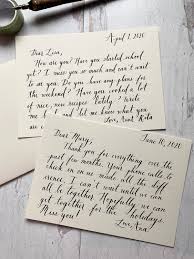 April 7, 2020
Dear Lisa,
How are you? Have you started school
yet? I miss you so much and can't wait
to see you. Do you have any plans for
the weekend? Have you cooked a lot
of nice, new recipes lately? Write
me and let me know what you
Love, Aunt
June 16, 2020
Dear Mary,
Thank you for everything over the
past few months. Your phone calls to
check on us made all the diff
erence. I can't wait until we can
all be together. Hopefully we can
get together for the holidays.
Miss you!
Love, Ana